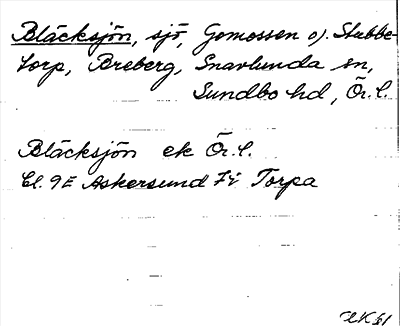 Bläcksjön, sjö, Gomossen o). Stubbe-
torp, Breberg, Snavlunda sn,
Sundbo hd, Ör. l.
Bläcksjön ek Ör. l.
Bl. 9E Askersund 7i Torpa
EK 51